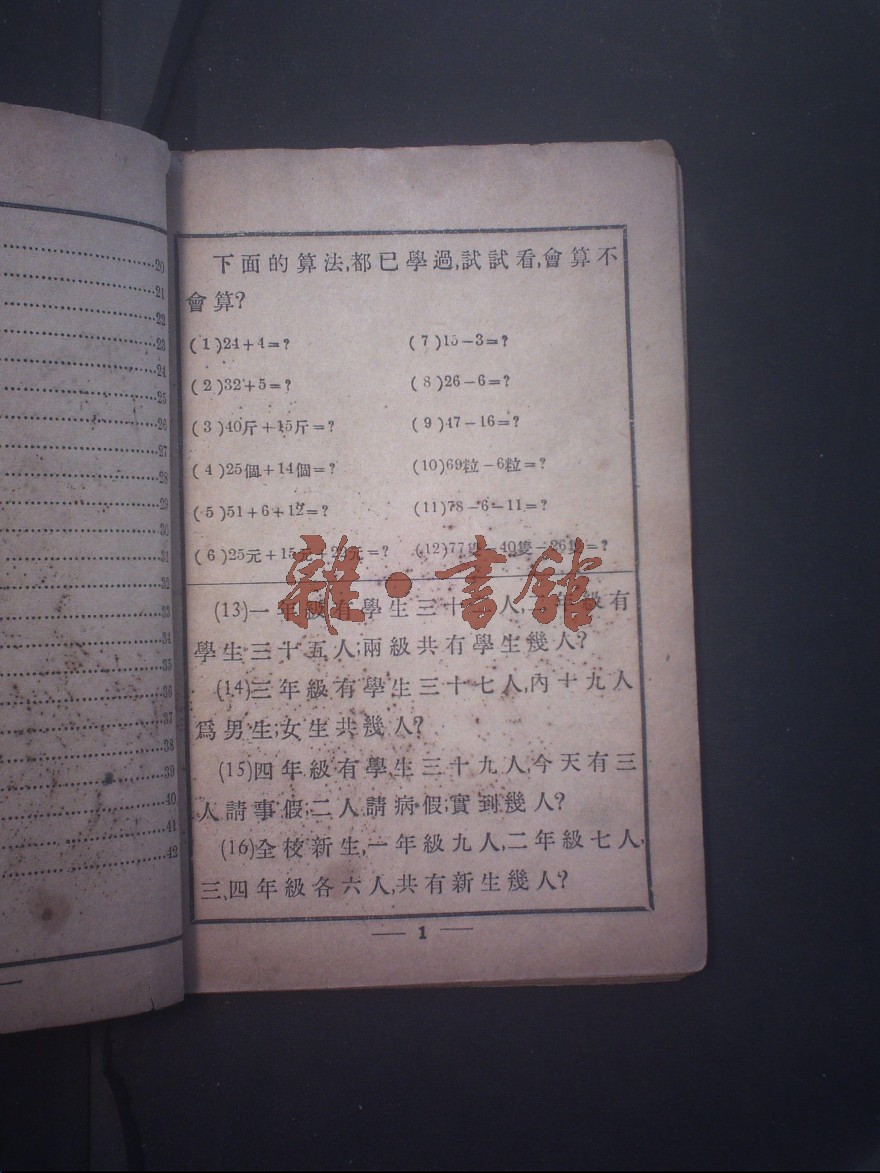 20
21
22
23
24
25
26
27
28
29
30
31
32
33
34
35
36
37
38
39
40
41
42
下面的算法,都已學過,試試看,會算不
會算?
(1)24+4=? (7)15-3=?
(2)32+5=? (8)26-6=?
(3)40斤+15斤=? (9)47-16=?
(4)25個+14個=? (10)69粒-6粒=?
(5)51+6+12=? (11)78-6-11=?
(6)25元+15元+22元=? (12)77隻-40隻-26隻=?
雜·書館
(13)一年級有學生三十人,二年級有
學生三十五人;兩級共有學生幾人?
(14)三年級有學生三十七人,內十九人
爲男生;女生共幾人?
(15)四年級有學生三十九人,今天有三
人請事假,二人請病假;實到幾人?
(16)全校新生,一年級九人,二年級七人,
三、四年級各六人,共有新生幾人?
1